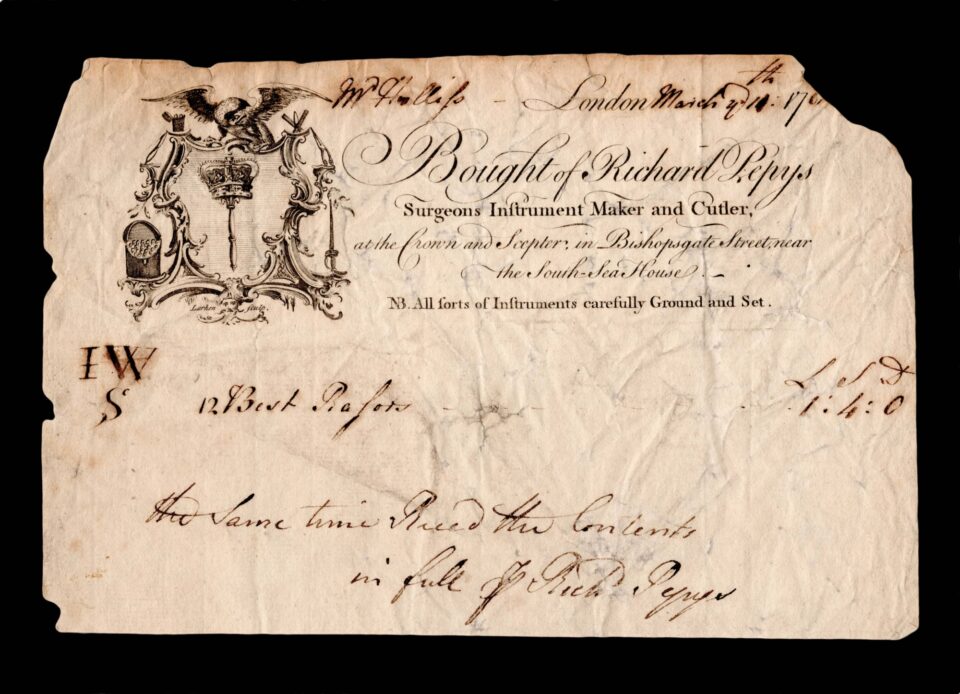 Mr Holliss – London March ye 11th: 176
Bought of Richard Pepys
Surgeons Inſtrument Maker and Cutler,
at the Crown and Scepter, in Bishopsgate Street, near
the South-Sea House. –
NB. All ſorts of Inſtruments carefully Ground and Set.
Larken sculp.
IW
S
L S D
12 Best Raſors - - 1: 4: 0
the Same time Reced the Contents
in full Richd Pepys